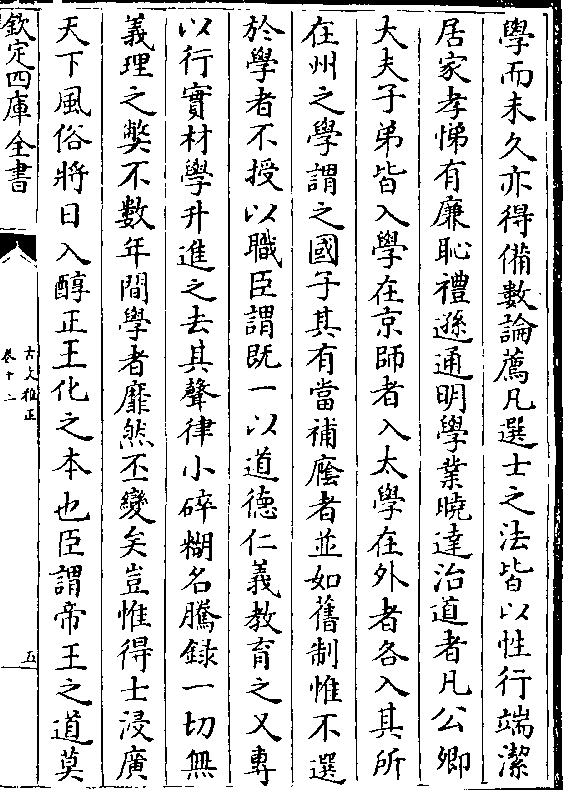 學而未久亦得備數論薦凡選士之法皆以性行端潔
居家孝悌有廉恥禮遜通明學業曉達治道者凡公卿
大夫子弟皆入學在京師者入太學在外者各入其所
在州之學謂之國子其有當補廕者並如舊制惟不選
於學者不授以職臣謂既一以道德仁義教育之又專
以行實材學升進之去其聲律小碎糊名騰錄一切無
義理之弊不數年間學者靡然丕變矣豈惟得士浸廣
天下風俗將日入醇正王化之本也臣謂帝王之道莫
欽定四庫全書
古文雅正
卷十二
五